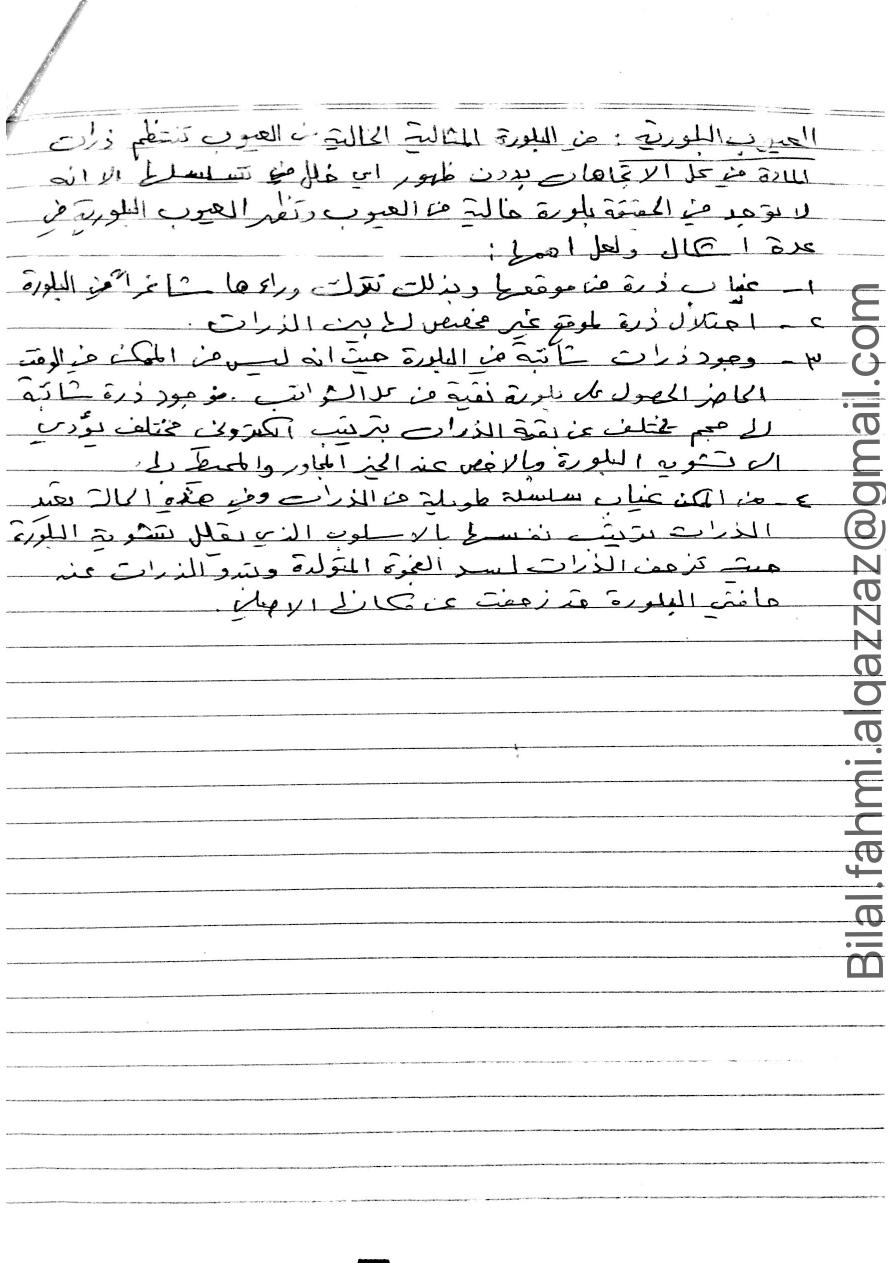 العيوب البلورية : في البلورة المثالية الخالية من العيوب تنتظم ذرات
المادة في كل الاتجاهات بدون ظهور اي خلل في تسلسلها الا انه
لا يوجد في الحقيقة بلورة خالية من العيوب وتظهر العيوب البلورية في
عدة اشكال ولعل اهمها :
١- غياب ذرة من موقعها وبذلك تترك وراءها شاغراً في البلورة
٢- احتلال ذرة لموقع غير مخصص لها بين الذرات .
٣- وجود ذرات شائبة في البلورة حيث انه ليس من الممكن في الوقت
الحاضر الحصول على بلورة نقية من كل الشوائب . فوجود ذرة شائبة
لها حجم مختلف عن بقية الذرات بترتيب الكتروني مختلف يؤدي
الى تشويه البلورة وبالاخص عند الحيز المجاور والمحيط بها .
٤- من الممكن غياب سلسلة طويلة من الذرات وفي هذه الحالة تعيد
الذرات ترتيب نفسها بالاسلوب الذي يقلل تشويه البلورة
حيث تزحف الذرات لسد الفجوة المتولدة وتبدو الذرات عند
حافتي البلورة قد زحفت عن مكانها الاصلي .
Bilal.fahmi.alqazzaz@gmail.com